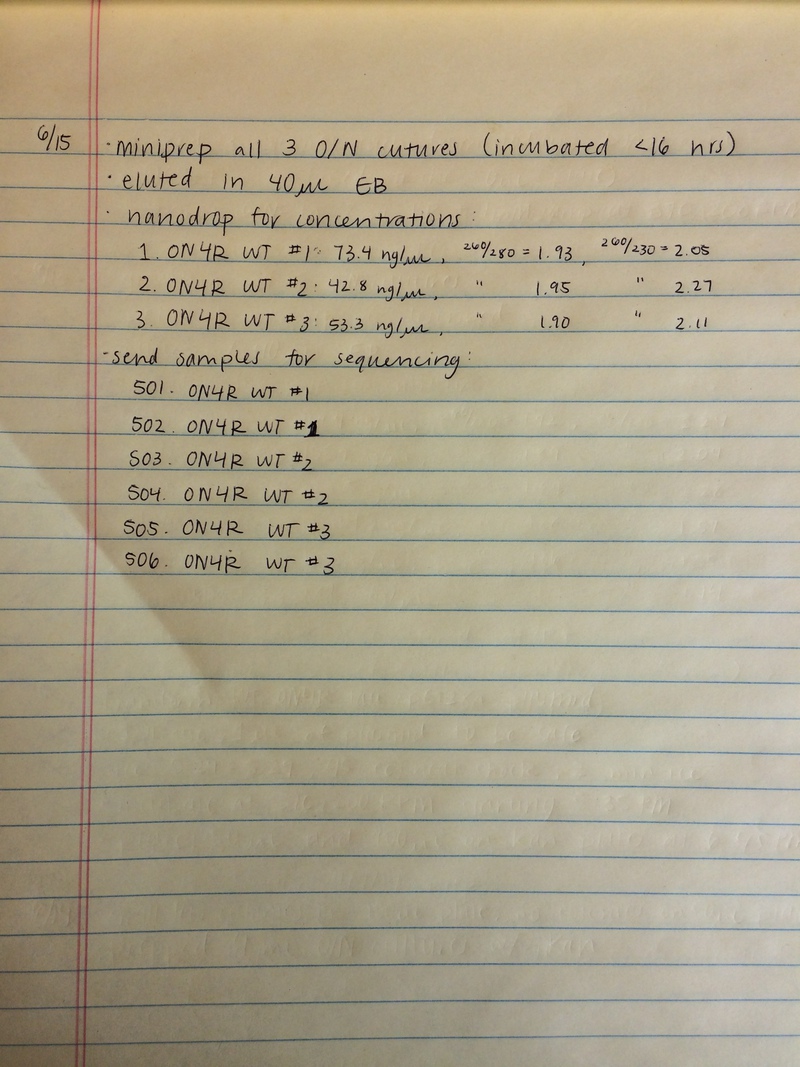 6/15 · miniprep all 3 O/N cutures (incubated <16 hrs)
· eluted in 40µL EB
· nanodrop for concentrations:
1. ON4R WT #1: 73.4 ng/µL, 260/280 = 1.93, 260/230 = 2.05
2. ON4R WT #2: 42.8 ng/µL, " 1.95 " 2.27
3. ON4R WT #3: 53.3 ng/µL, " 1.90 " 2.11
· send samples for sequencing:
501. ON4R WT #1
502. ON4R WT #1
503. ON4R WT #2
504. ON4R WT #2
505. ON4R WT #3
506. ON4R WT #3